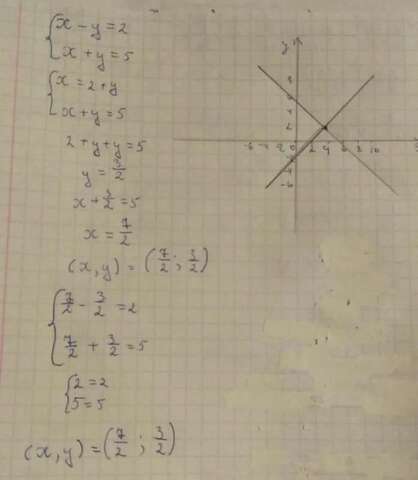 {x - y = 2
x + y = 5
{x = 2 + y
x + y = 5
2 + y + y = 5
y = 3/2
x + 3/2 = 5
x = 7/2
(x, y) = (7/2 ; 3/2)
{7/2 - 3/2 = 2
7/2 + 3/2 = 5
{2 = 2
5 = 5
(x, y) = (7/2 ; 3/2)
y
2
-6 -4 -2 0 2 4 6 8 10